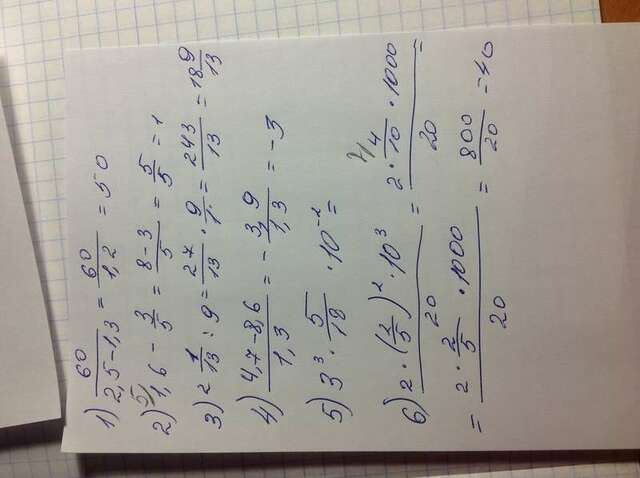 1) 60/(2,5-1,3) = 60/1,2 = 50
2) 1,6 - 3/5 = (8-3)/5 = 5/5 = 1
3) 2 1/13 : 9 = 27/13 · 9/1 = 243/13 = 18 9/13
4) (4,7-8,6)/1,3 = - 3,9/1,3 = -3
5) 3³ · 5/18 · 10⁻² =
6) (2 · (2/5)² · 10³)/20 = (2 · 4/10 · 1000)/20 =
= (2 · 2/5 · 1000)/20 = 800/20 = 40